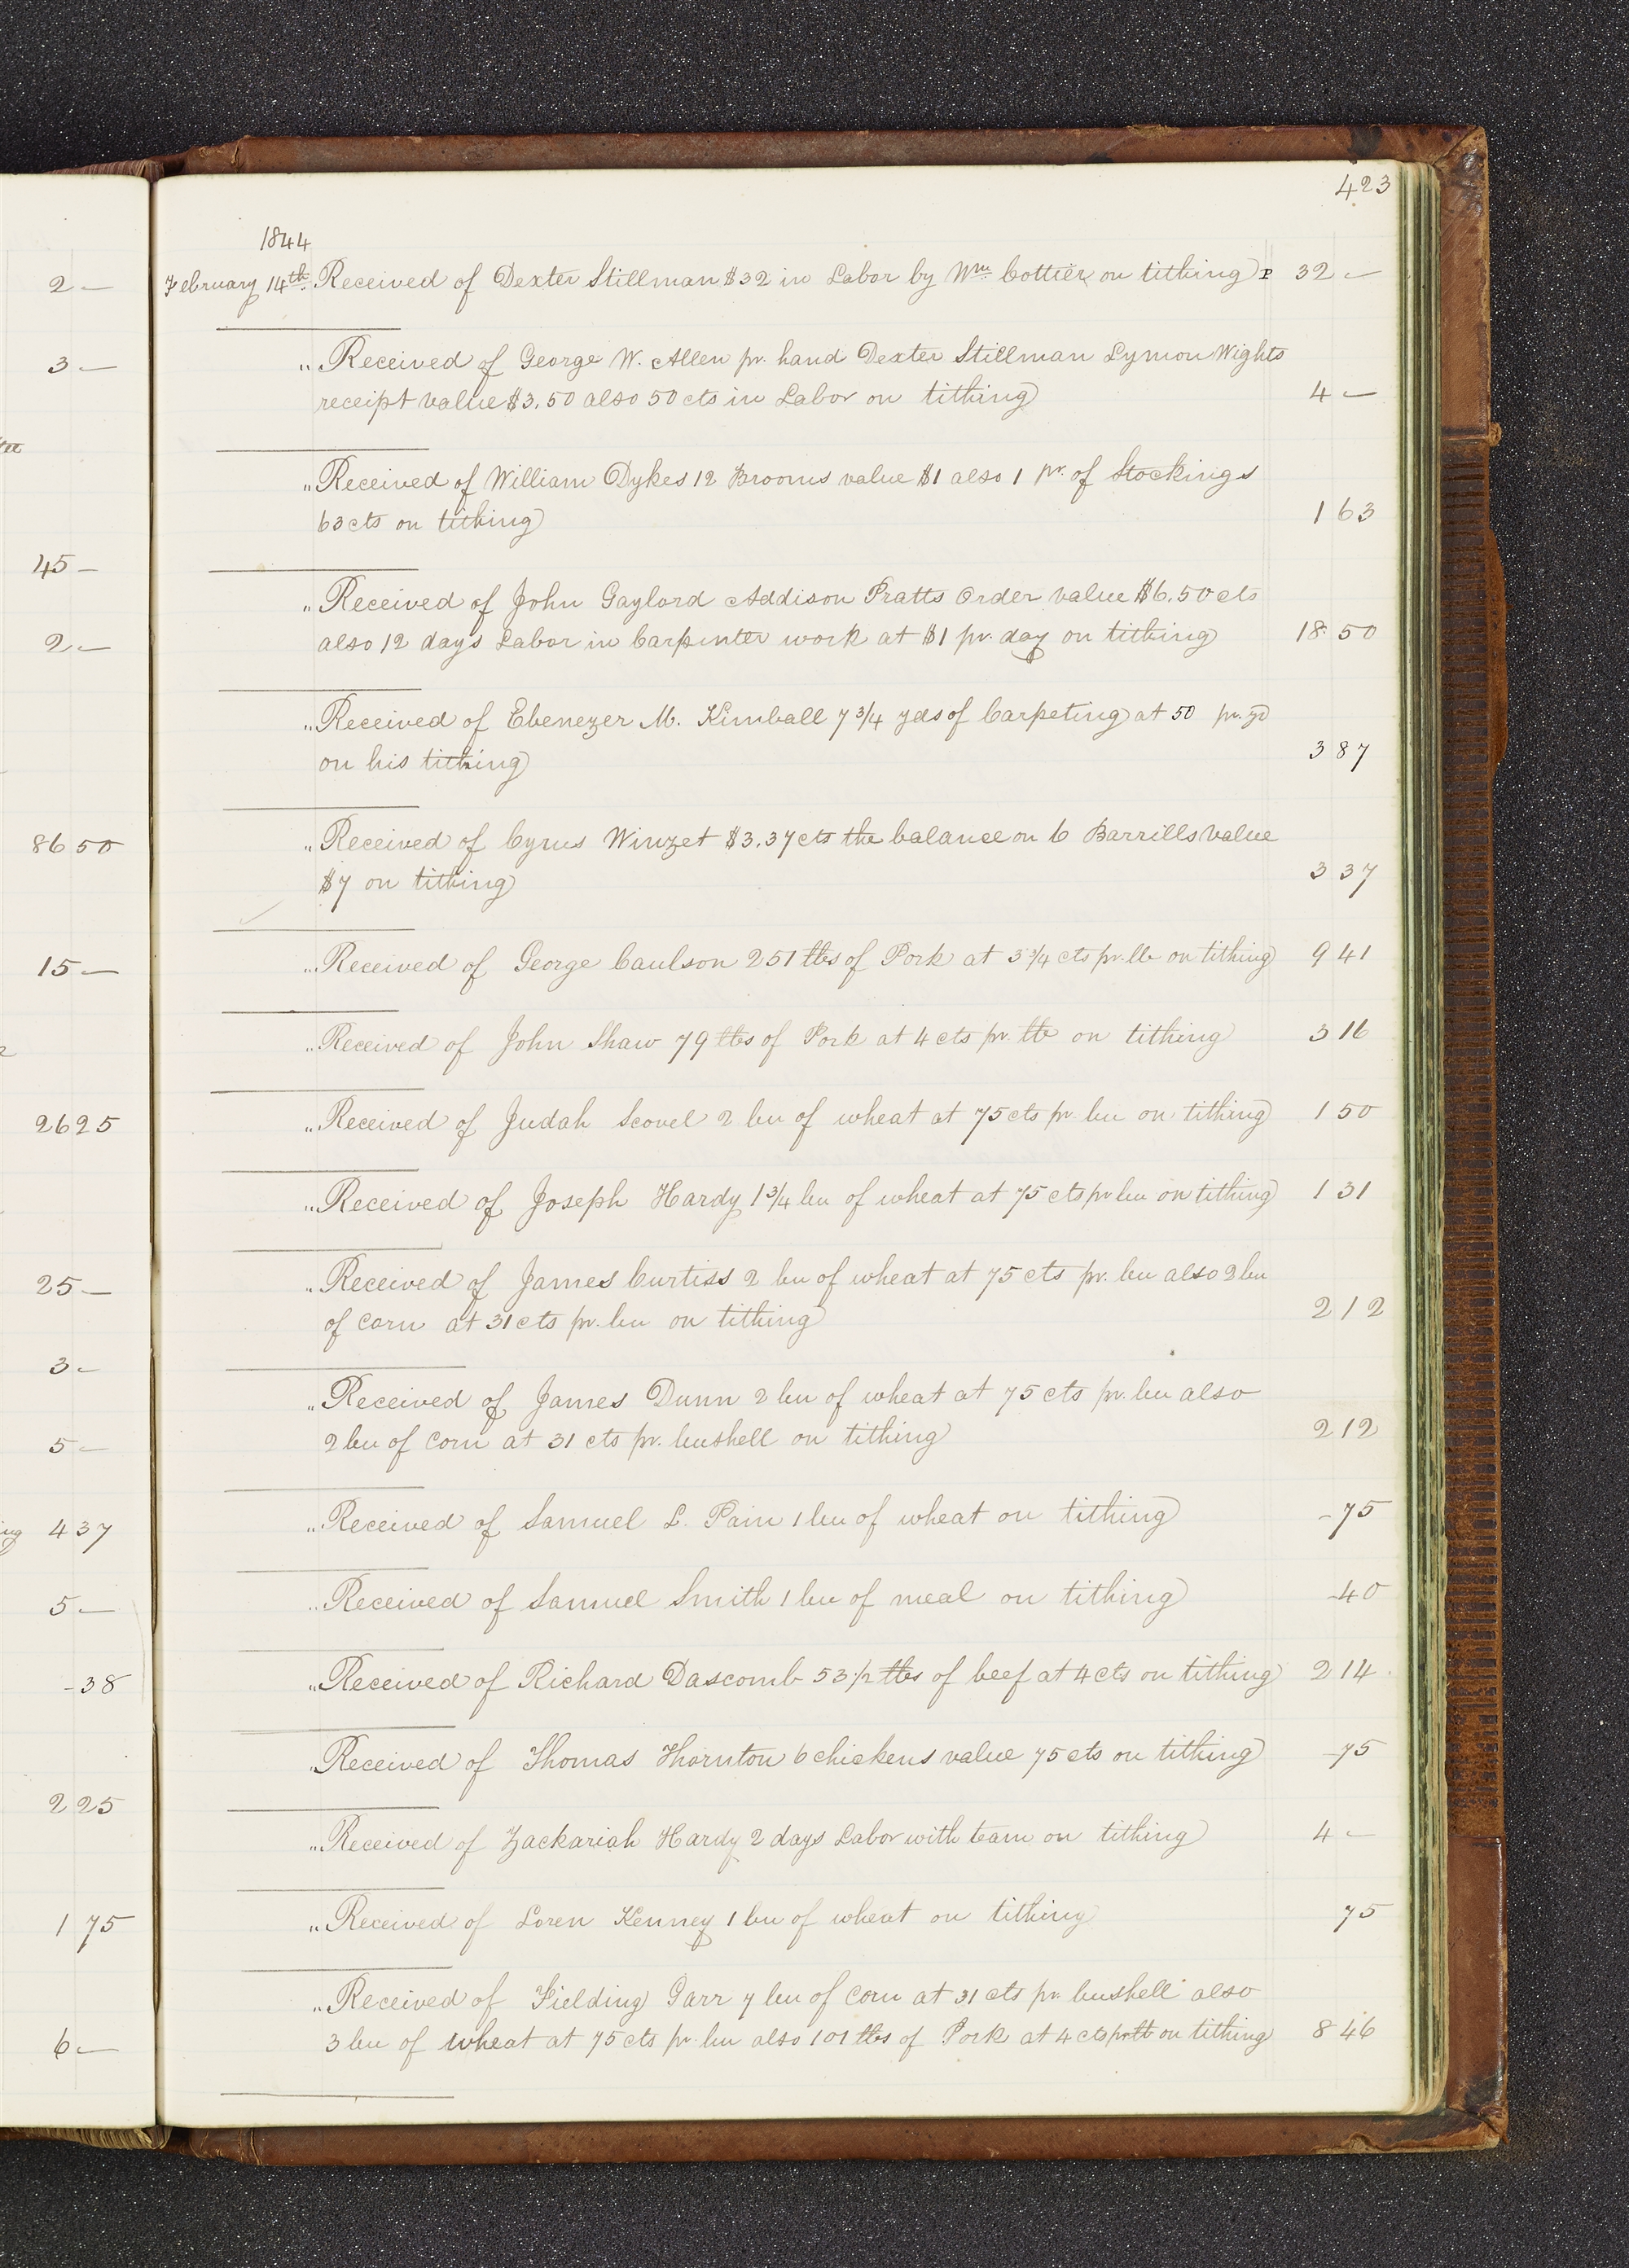 423
1844
February 14th. Received of Dexter Stillman $32 in Labor by Wm. Cottier on tithing 32 —
" Received of George W. Allen pr. hand Dexter Stillman Lymon Wights
receipt value $3.50 also 50 cts in Labor on tithing 4 —
" Received of William Dykes 12 Brooms value $1 also 1 pr. of Stockings
63 cts on tithing 1 63
" Received of John Gaylord Addison Pratts Order value $6.50 cts
also 12 days Labor in Carpinter work at $1 pr. day on tithing 18. 50
" Received of Ebenezer M. Kimball 7 3/4 yds of Carpeting at 50 pr. yd
on his tithing 3 87
" Received of Cyrus Winzet $3.37 cts the balance on 6 Barrills value
$7 on tithing 3 37
" Received of George Caulson 251 lbs of Pork at 3 3/4 cts pr. lb on tithing 9 41
" Received of John Shaw 79 lbs of Pork at 4 cts pr. lb on tithing 3 16
" Received of Judah Scovel 2 bu of wheat at 75 cts pr. bu on tithing 1 50
" Received of Joseph Hardy 1 3/4 bu of wheat at 75 cts pr bu on tithing 1 31
" Received of James Curtiss 2 bu of wheat at 75 cts pr. bu also 2 bu
of corn at 31 cts pr. bu on tithing 2 12
" Received of James Dunn 2 bu of wheat at 75 cts pr. bu also
2 bu of corn at 31 cts pr. bushell on tithing 2 12
" Received of Samuel L. Pain 1 bu of wheat on tithing - 75
" Received of Samuel Smith 1 bu of meal on tithing - 40
" Received of Richard Dascomb 53 1/2 lbs of beef at 4 cts on tithing 2 14
" Received of Thomas Thornton 6 chickens value 75 cts on tithing - 75
" Received of Zackariah Hardy 2 days Labor with team on tithing 4 —
" Received of Loren Kenney 1 bu of wheat on tithing 75
" Received of Fielding Garr 7 bu of corn at 31 cts pr. bushell also
3 bu of wheat at 75 cts pr. bu also 101 lbs of Pork at 4 cts pr lb on tithing 8 46
2 —
3 —
45 —
2 —
86 50
15 —
26 25
25 —
3 —
5 —
4 37
5 —
- 38
2 25
1 75
6 —